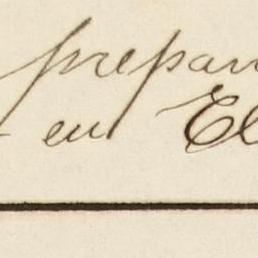 prepar
en El